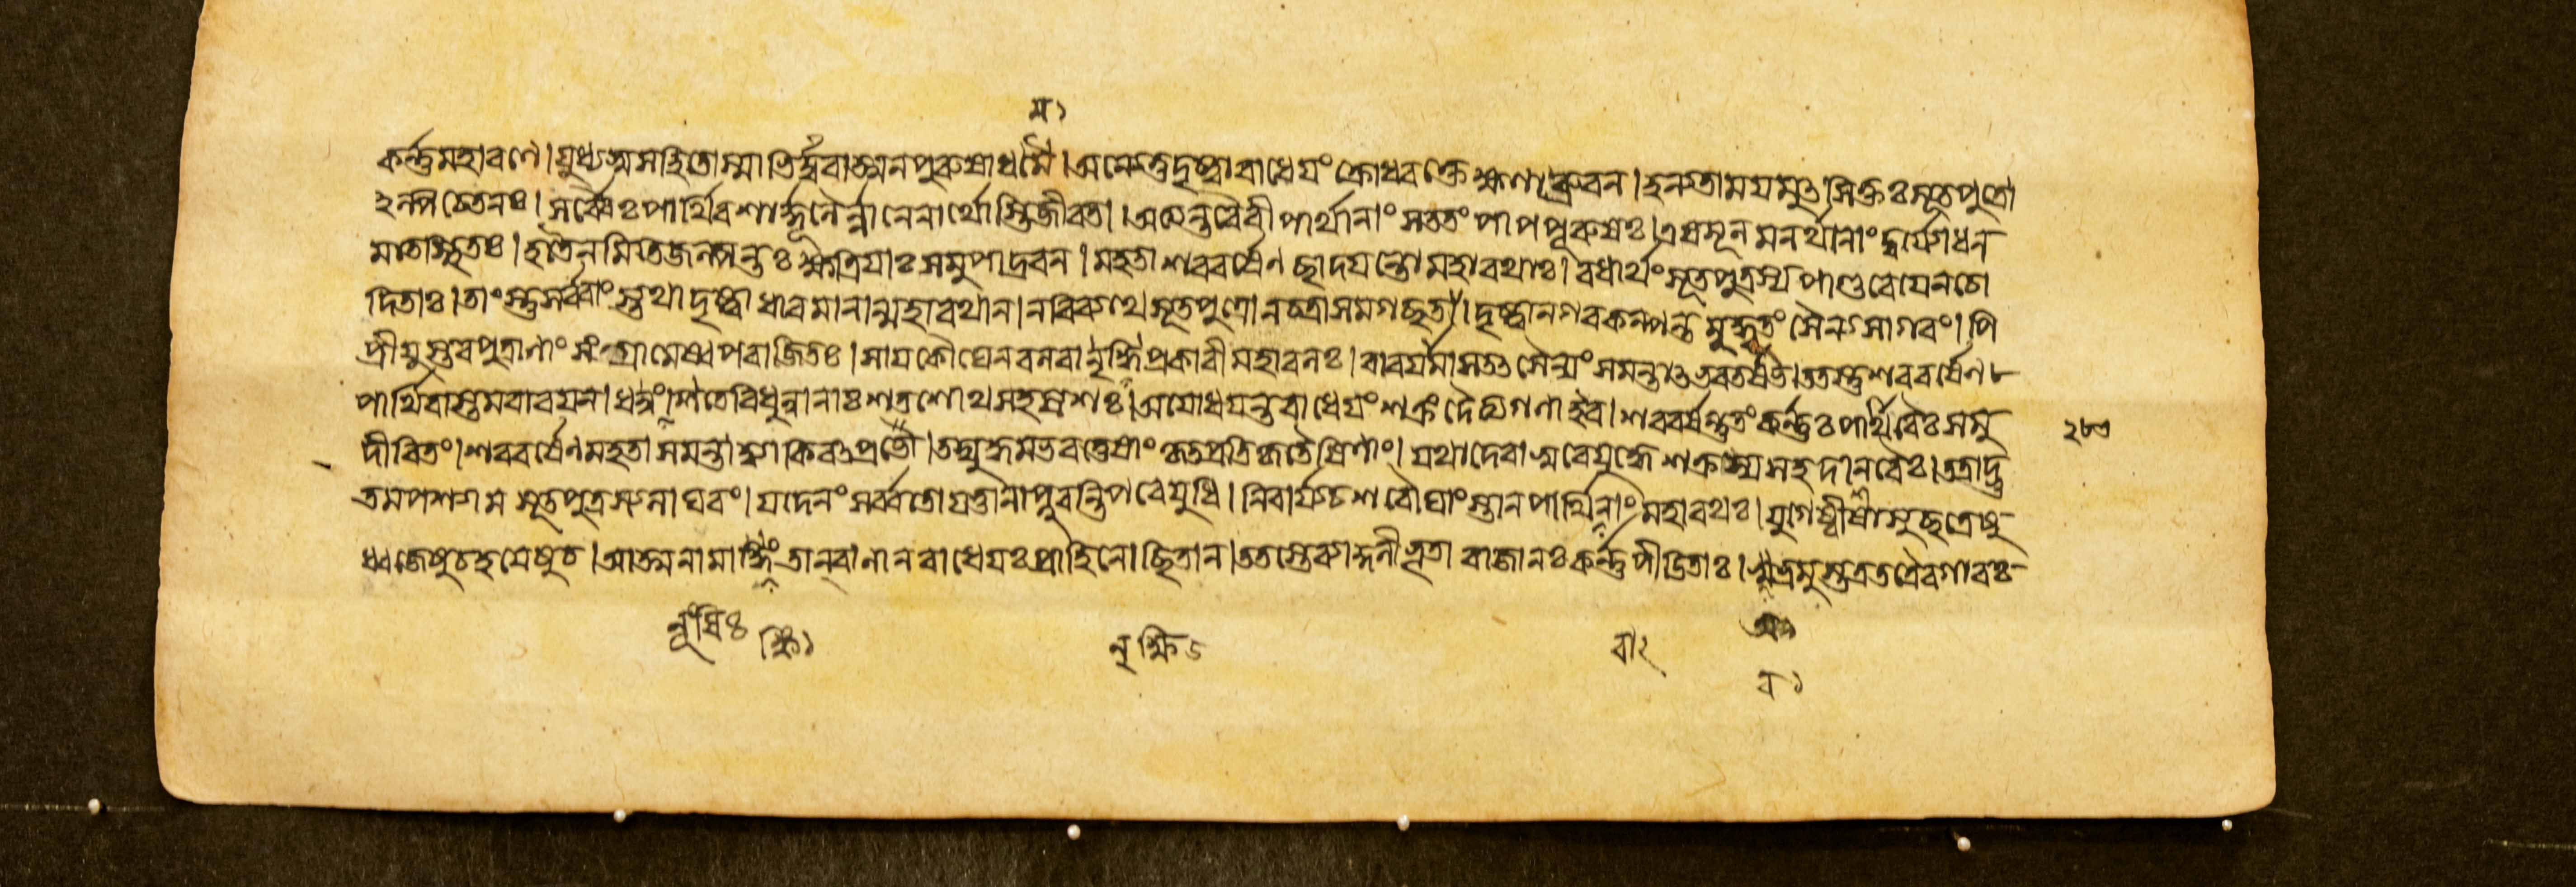 ম১
কর্ন্নমহারণে। যুধ্যস্ব সহিতোস্মাভির্দুরাত্মন পুরুষাধম। অন্যেতু দৃষ্ট্বা রাধেয়ং ক্রোধরক্তেক্ষণাব্রুবন। হন্যতাময়মুৎসিক্তঃ সূতপুত্রো
ল্পচেতনঃ। সর্ব্বৈঃ পার্থিবশার্দ্দূলৈর্ন্নানেনার্থোস্তি জীবতা। অত্যন্তবৈরী পার্থানাং সততং পাপপূরুষঃ। এষ মূলমনর্থানাং দুর্যোধন
মতে স্থিতঃ। হতৈনমিতি জল্পন্তঃ ক্ষত্রিয়াঃ সমুপাদ্রবন। মহতা শরবর্ষেণ ছাদয়ন্তো মহারথাঃ। বধার্থং সূতপুত্রস্য পাণ্ডবেয়েন চো
দিতাঃ। তাংস্তু সর্ব্বাংস্তথা দৃষ্ট্বা ধাবমানান্মহারথান। ন বিব্যথে সূতপুত্রো ন চ ত্রাসমগছত। দৃষ্ট্বা নগরকল্পন্তমুদ্ধূতং সৈন্যসাগরং। পি
প্রীষুস্তব পুত্রাণাং সংগ্রামেষ্বপরাজিতঃ। সায়কৌঘেন বলবান্ ক্ষিপ্রকারী মহাবলঃ। বারয়ামাস তৎ সৈন্যং সমন্তাৎ ভরতর্ষভ। ততস্তু শরবর্ষেণ
পার্থিবাস্তমবারয়ন। ধনুংষি তে বিধুন্বানাঃ শতশোথ সহস্রশঃ। অযোধয়ন্ত রাধেয়ং শক্রং দৈত্যগণা ইব। শরবর্ষন্তু তং কর্ন্নঃ পার্থিবৈঃ সমু
দীরিতং। শরবর্ষেণ মহতা সমন্তাদ্ব্যকিরৎ প্রভো। তদ্যুদ্ধমভবত্তেষাং কৃতপ্রতিকৃতৈষিণাং। যথা দেবাসুরে যুদ্ধে শক্রস্য সহ দানবৈঃ। তত্রাদ্ভু
তমপশ্যাম সূতপুত্রস্য লাঘবং। যদেনং সর্ব্বতো যত্তা নাপ্নুবন্তি পরে যুধি। নিবার্য চ শরৌঘাংস্তান পার্থিবানাং মহারথঃ। যুগেষ্বীষাসু ছত্রেষু
ধ্বজেষু চ হয়েষু চ। আত্মনামাঙ্কিতান্বাণান রাধেয়ঃ প্রাহিণোচ্ছিতান। ততস্তে ব্যাকুলীভূতা রাজানঃ কর্ন্নপীড়িতাঃ। বভ্রমুস্তত্র তত্রৈব গাবঃ
বা২
ব১